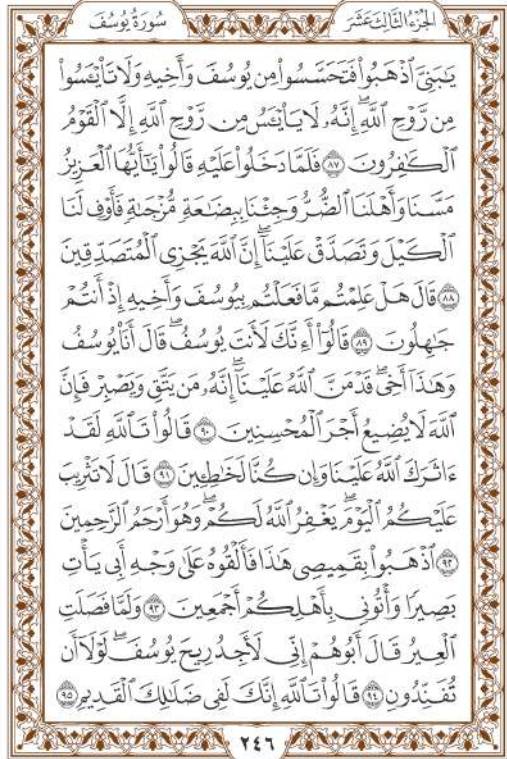 الجُزْءُ الثَّالِثَ عَشَرَ
سُورَةُ يُوسُفَ
يَٰبَنِيَّ ٱذْهَبُوا۟ فَتَحَسَّسُوا۟ مِن يُوسُفَ وَأَخِيهِ وَلَا تَا۟يْـَٔسُوا۟
مِن رَّوْحِ ٱللَّهِۖ إِنَّهُۥ لَا يَا۟يْـَٔسُ مِن رَّوْحِ ٱللَّهِ إِلَّا ٱلْقَوْمُ
ٱلْكَٰفِرُونَ ٨٧ فَلَمَّا دَخَلُوا۟ عَلَيْهِ قَالُوا۟ يَٰٓأَيُّهَا ٱلْعَزِيزُ
مَسَّنَا وَأَهْلَنَا ٱلضُّرُّ وَجِئْنَا بِبِضَٰعَةٍ مُّزْجَىٰةٍ فَأَوْفِ لَنَا
ٱلْكَيْلَ وَتَصَدَّقْ عَلَيْنَآۖ إِنَّ ٱللَّهَ يَجْزِى ٱلْمُتَصَدِّقِينَ
٨٨ قَالَ هَلْ عَلِمْتُم مَّا فَعَلْتُم بِيُوسُفَ وَأَخِيهِ إِذْ أَنتُمْ
جَٰهِلُونَ ٨٩ قَالُوٓا۟ أَءِنَّكَ لَأَنتَ يُوسُفُۖ قَالَ أَنَا۠ يُوسُفُ
وَهَٰذَآ أَخِىۖ قَدْ مَنَّ ٱللَّهُ عَلَيْنَآۖ إِنَّهُۥ مَن يَتَّقِ وَيَصْبِرْ فَإِنَّ
ٱللَّهَ لَا يُضِيعُ أَجْرَ ٱلْمُحْسِنِينَ ٩٠ قَالُوا۟ تَٱللَّهِ لَقَدْ
ءَاثَرَكَ ٱللَّهُ عَلَيْنَا وَإِن كُنَّا لَخَٰطِـِٔينَ ٩١ قَالَ لَا تَثْرِيبَ
عَلَيْكُمُ ٱلْيَوْمَۖ يَغْفِرُ ٱللَّهُ لَكُمْۖ وَهُوَ أَرْحَمُ ٱلرَّٰحِمِينَ
٩٢ ٱذْهَبُوا۟ بِقَمِيصِى هَٰذَا فَأَلْقُوهُ عَلَىٰ وَجْهِ أَبِى يَأْتِ
بَصِيرًا وَأْتُونِى بِأَهْلِكُمْ أَجْمَعِينَ ٩٣ وَلَمَّا فَصَلَتِ
ٱلْعِيرُ قَالَ أَبُوهُمْ إِنِّى لَأَجِدُ رِيحَ يُوسُفَۖ لَوْلَآ أَن
تُفَنِّدُونِ ٩٤ قَالُوا۟ تَٱللَّهِ إِنَّكَ لَفِى ضَلَٰلِكَ ٱلْقَدِيمِ ٩٥
٢٤٦